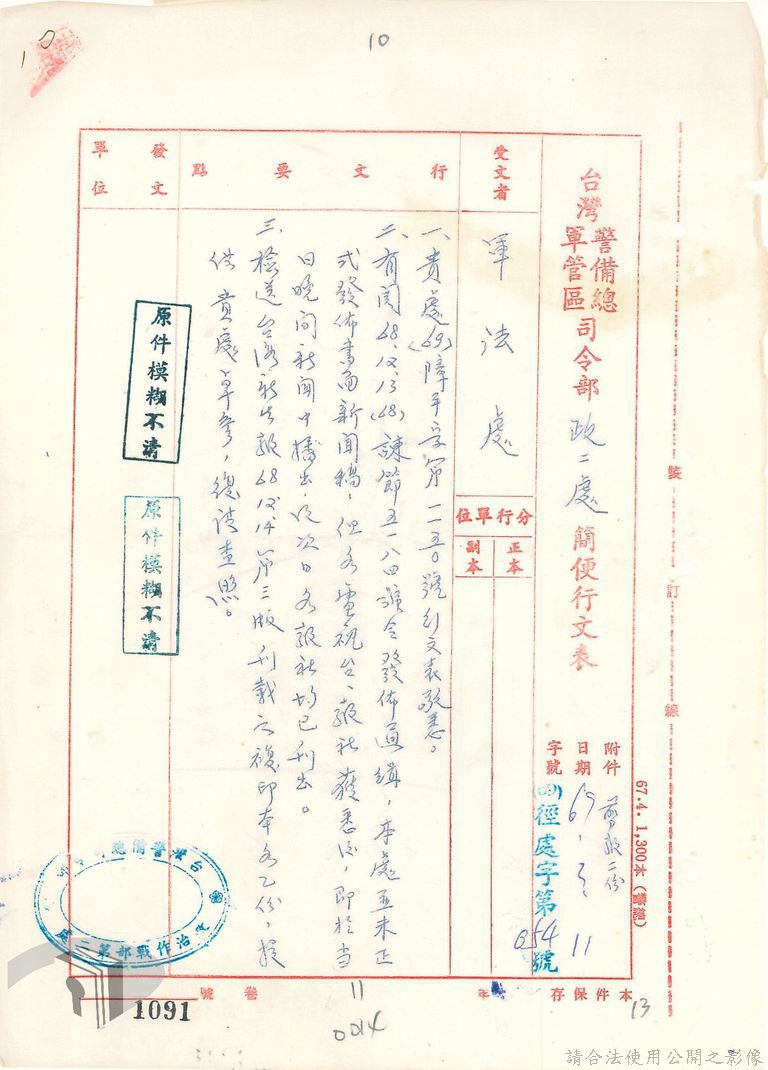 10
10
台灣警備總
軍管區司令部 政二處 簡便行文表
附件 剪報二份
日期 69.3.11
字號 (69)徑處字第654號
受文者
軍法處
分行單位
正本
副本
行文要點
一、貴處(69)障平字第一一五0號行文表敬悉。
二、有關68.12.13(68)諫節五一八四號令發佈通緝,本處並未正
式發佈書面新聞稿,但各電視台、報社獲悉後,即於当
日晚间新闻中播出,次日各報社均已刊出。
三、檢送台灣新生報68.12.14第三版刊載之複印本各乙份,
供貴處卓參,復請查照。
發文單位
原件模糊不清
原件模糊不清
台灣警備總司令部
政治作戰部第二處
裝訂線
67.4.1,300本(警總)
本件保存 年
卷 號
11
0014
1091
13
請合法使用公開之影像